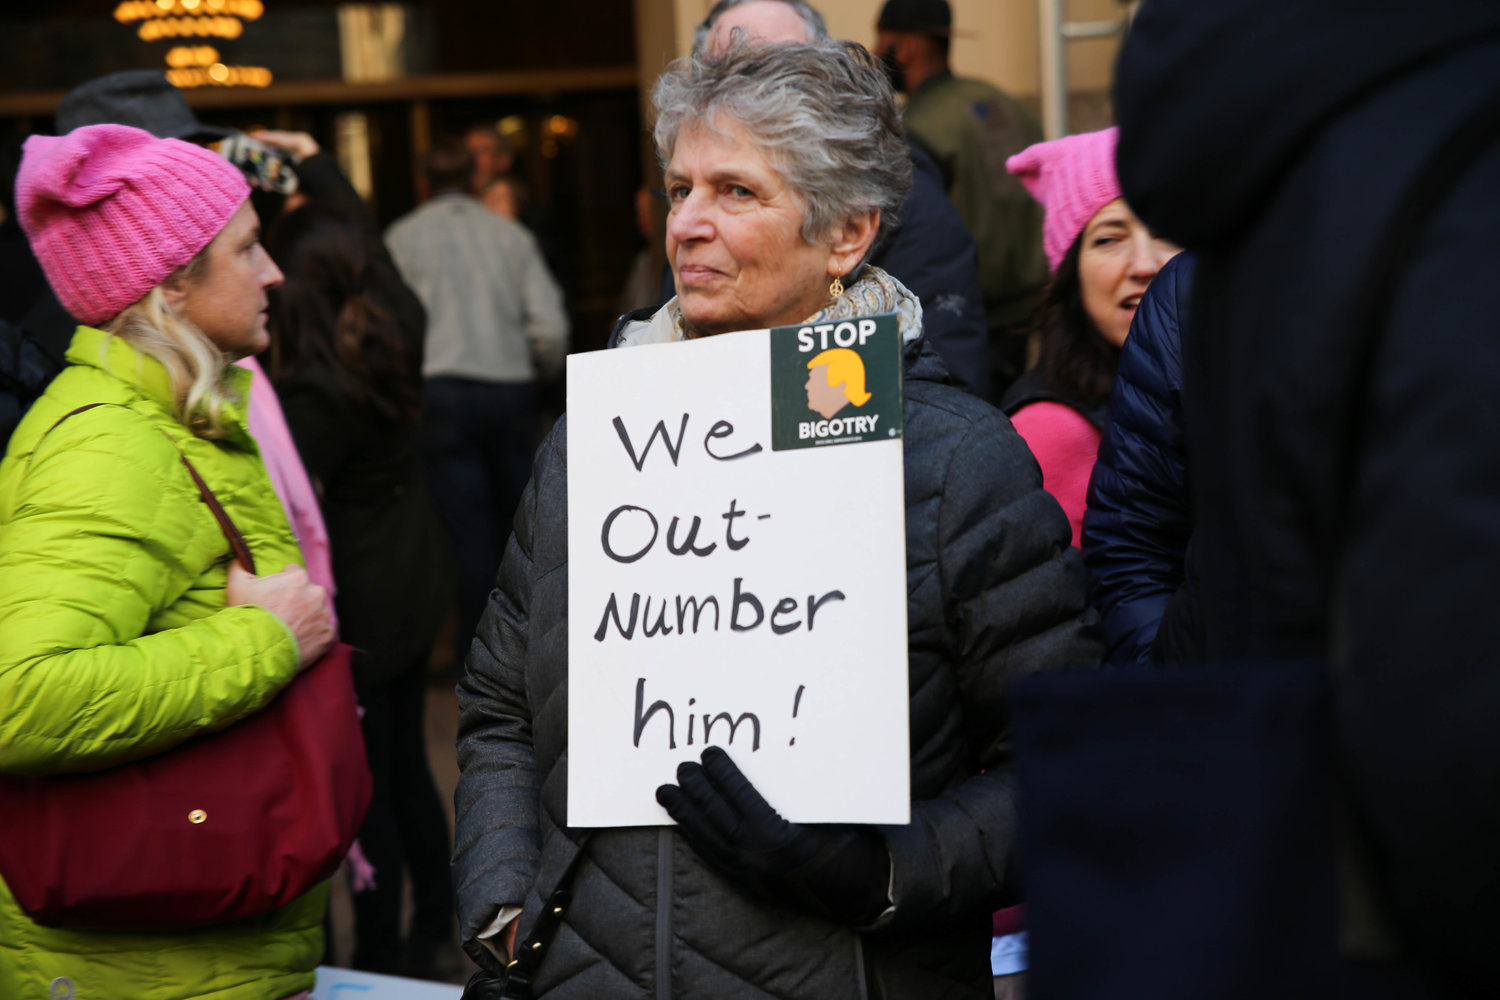 STOP
BIGOTRY
We
Out-
Number
him!